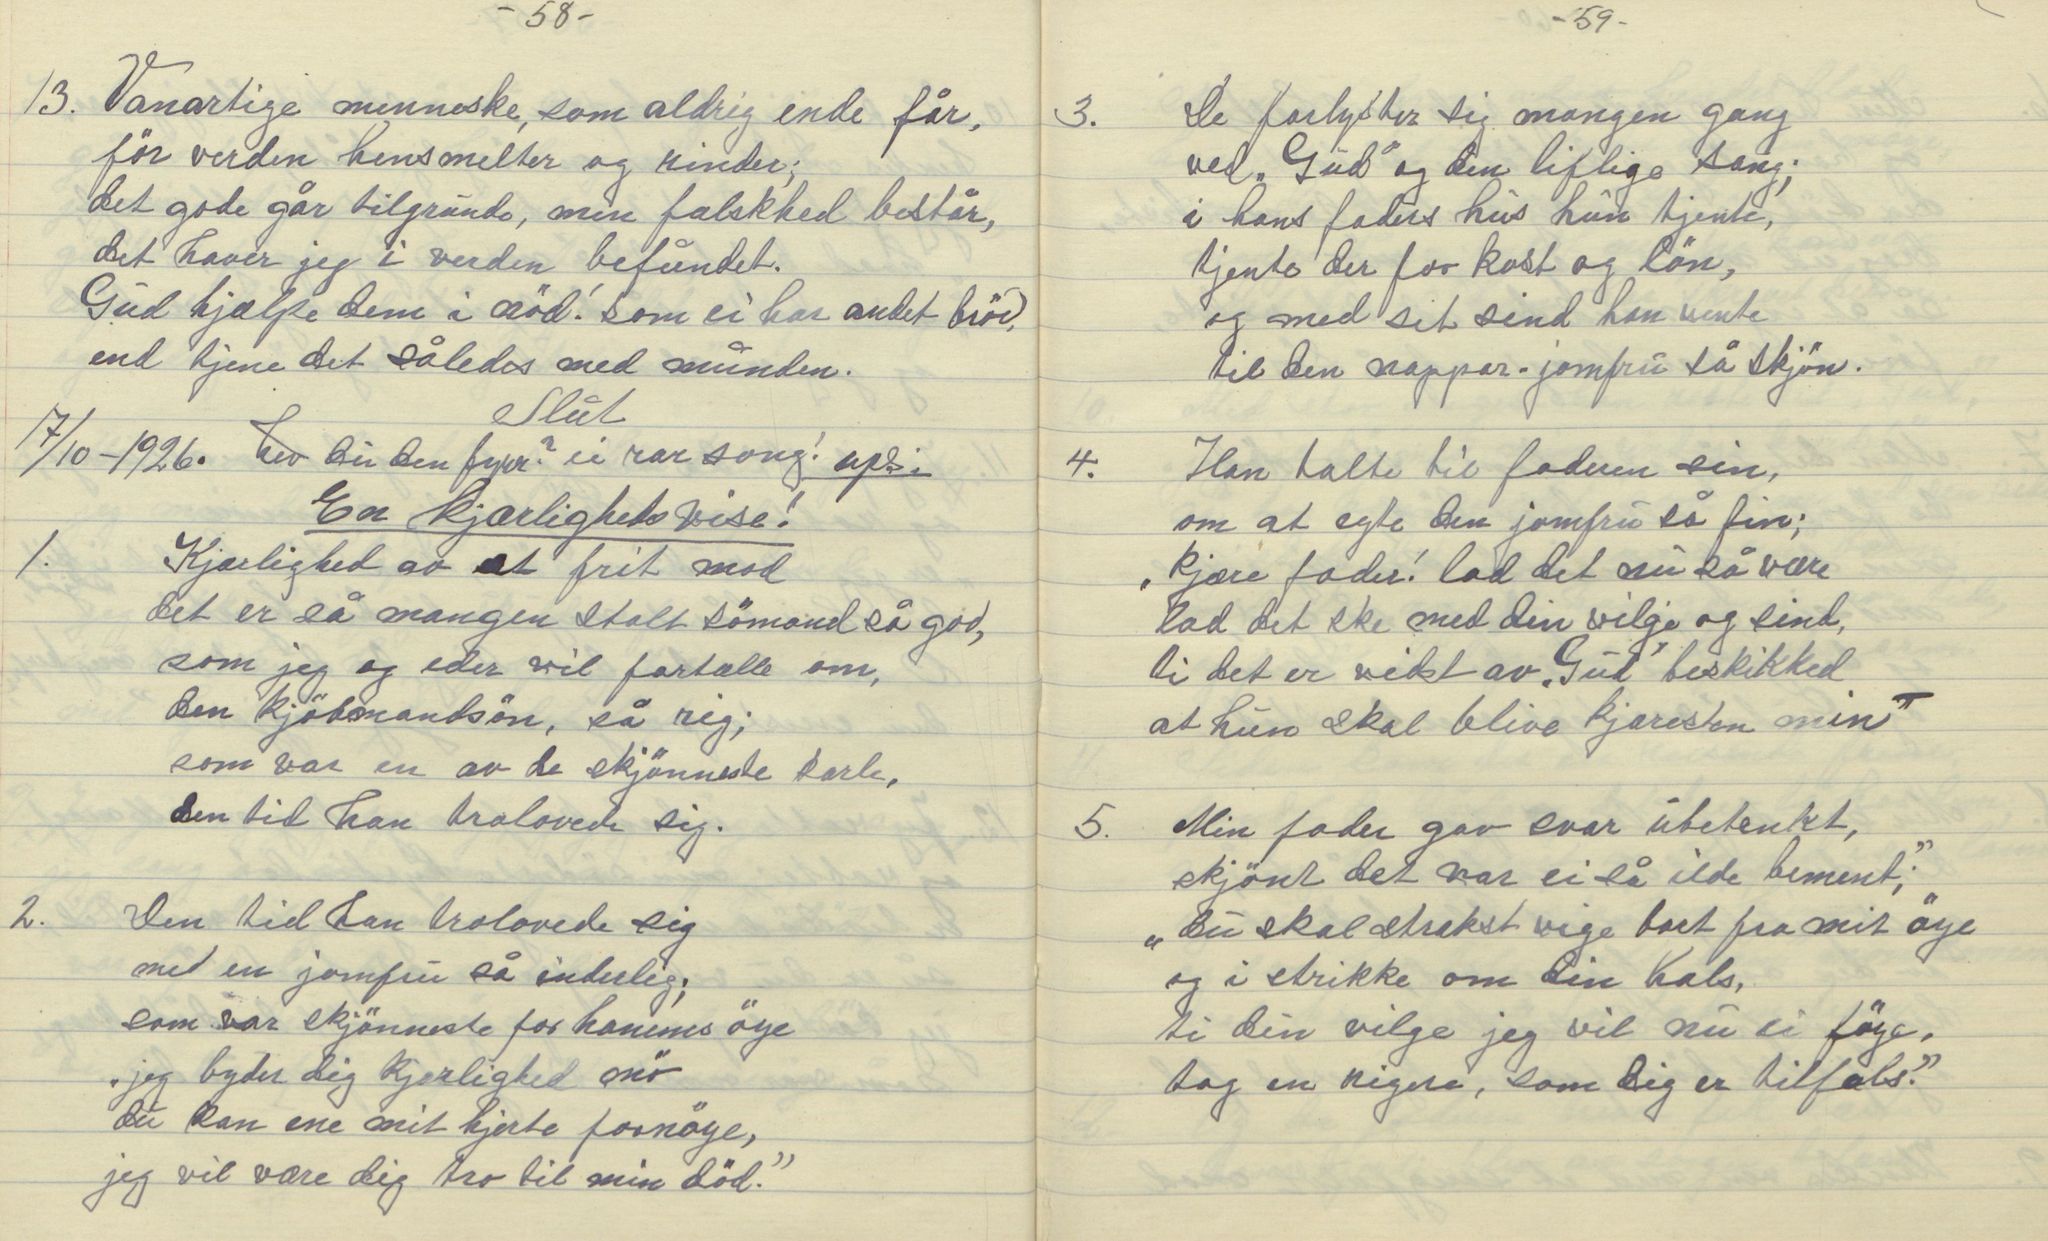 - 58 -
13. Vanartige menneske, som aldrig ende får,
för verden hensmelter og rinder;
det gode går tilgrunde, men falskhed består,
det haver jeg i verden befundet.
Gud hjælpe dem i nöd! som ei har andet bröd,
end tjene det således med munden.
Slut
17/10-1926. Lev du den fyrr? ei rar song!
En kjærligheds vise!
1. Kjærlighed av et frit mod
det er så mangen stolt sömand så god,
som jeg og eder vil fortælle om,
den kjöbmandsön, så rig;
som var en av de skjönneste karle,
den tid han trolovede sig.
2. Den tid han trolovede sig
med en jomfru så inderlig;
som var skjönneste for hanems öye
"jeg byder dig kjerlighed mö
du kan ene mit hjerte fornöye,
jeg vil være dig tro til min död."
- 59 -
3. De forlyster sig mangen gang
ved "Gud" og den liflige sang;
i hans faders hus hun tjente,
tjente der for kost og lön,
og med sit sind han vente
til den vappar-jomfru så skjön.
4. Han talte til faderen sin,
om at egte den jomfru så fin;
"kjære fader! lad det nu så være
lad det ske med din vilje og sind,
ti det er vidst av "Gud" beskikked
at hun skal blive kjæresten min"
5. Min fader gav svar ubetenkt,
skjönt det var ei så ilde bement;"
"du skal strakst vige bort fra mit öye
og i strikke om din hals,
ti din vilge jeg vil nu ei föye,
tag en rigere, som dig er tilfals."